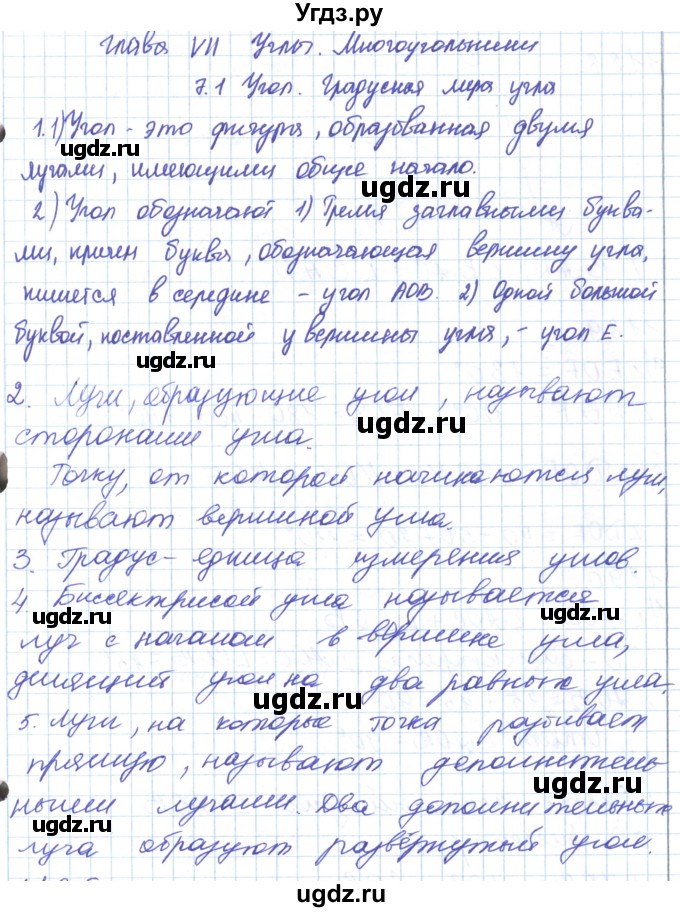 Угдз.ру
Глава VII Углы. Многоугольники
7.1 Угол. Градусная мера угла
1.1) Угол - это фигура, образованная двумя
ugdz.ru
лучами, имеющими общее начало.
ugdz.ru
2) Угол обозначают 1) Тремя заглавными буква-
ми, причем буква, обозначающая вершину угла,
пишется в середине - угол АОВ. 2) Одной большой
ugdz.ru
буквой, поставленной у вершины угла, - угол Е.
2. Лучи, образующие угол, называют
ugdz.ru
сторонами угла.
Точку, от которой начинаются лучи,
называют вершиной угла.
ugdz.ru
3. Градус - единица измерения углов.
4 Биссектрисой угла называется
ugdz.ru
луч с началом в вершине угла,
делящий угол на два равных угла.
ugdz.ru
5. Лучи, на которые точка разбивает
прямую, называют дополнитель
ными лучами. Два дополнительных
ugdz.ru
луча образуют развёрнутый угол.
ugdz.ru
ugdz.ru